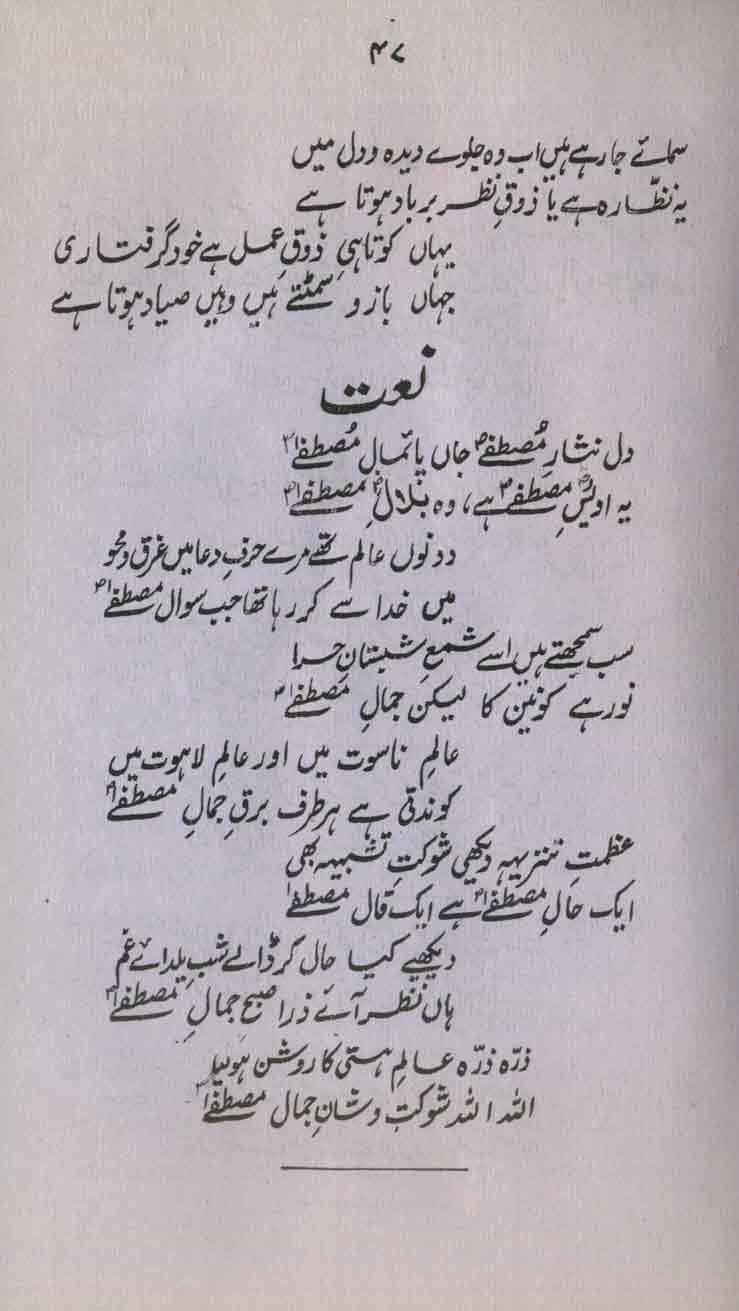 ۴۷
سمائے جا رہے ہیں اب وہ جلوے دیدہ و دل میں
یہ نظّارہ ہے یا ذوقِ نظر برباد ہوتا ہے
یہاں کوتاہیِ ذوقِ عمل ہے خود گرفتاری
جہاں بازو سمٹتے ہیں وہیں صیاد ہوتا ہے
نعت
دل نثارِ مُصطفےٰؐ جاں پائمالِ مُصطفےٰؐ
یہ اویسِؓ مصطفےٰؐ ہے، وہ بلالِؓ مصطفےٰؐ
دونوں عالم تھے مرے حرفِ دعا میں غرق و محو
میں خدا سے کر رہا تھا جب سوالِ مصطفےٰؐ
سب سمجھتے ہیں اسے شمعِ شبستانِ حرا
نور ہے کونین کا لیکن جمالِ مصطفےٰؐ
عالمِ ناسوت میں اور عالمِ لاہوت میں
کوندتی ہے ہر طرف برقِ جمالِ مصطفےٰؐ
عظمتِ تنزیہہ دیکھی شوکتِ تشبیہہ بھی
ایک حالِ مصطفےٰؐ ہے ایک قال مصطفےٰؐ
دیکھیے کیا حال کر ڈالے شبِ یلدائے غم
ہاں نظر آئے ذرا صبح جمالِ مصطفےٰؐ
ذرّہ ذرّہ عالمِ ہستی کا روشن ہو گیا
اللہ اللہ شوکت و شانِ جمال مصطفےٰؐ